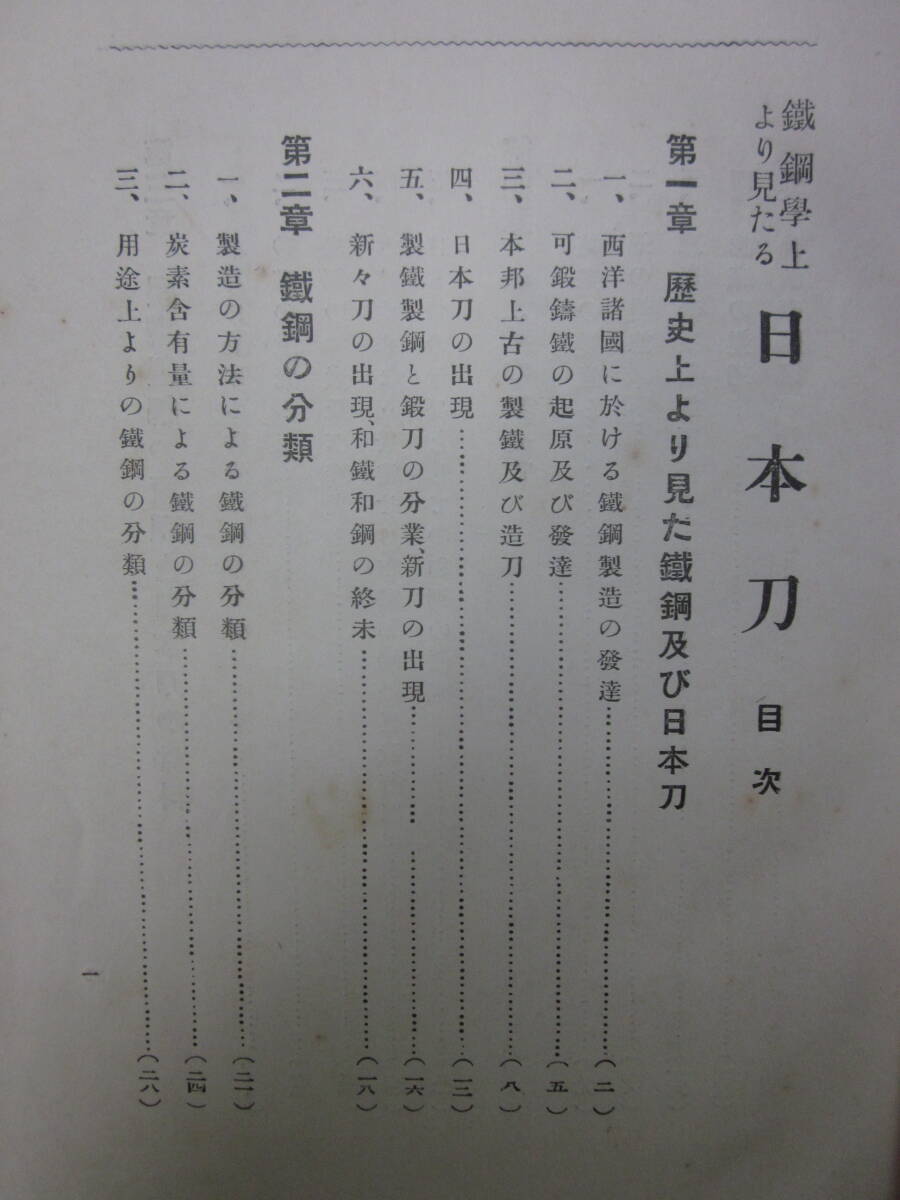 鐵鋼學上
より見たる
日本刀 目次
第一章 歷史上より見た鐵鋼及び日本刀
一、西洋諸國に於ける鐵鋼製造の發達……(二)
二、可鍛鑄鐵の起原及び發達……(五)
三、本邦上古の製鐵及び造刀……(八)
四、日本刀の出現……(一三)
五、製鐵製鋼と鍛刀の分業、新刀の出現……(一六)
六、新々刀の出現、和鐵和鋼の終未……(一八)
第二章 鐵鋼の分類
一、製造の方法による鐵鋼の分類……(二一)
二、炭素含有量による鐵鋼の分類……(二四)
三、用途上よりの鐵鋼の分類……(二八)
一